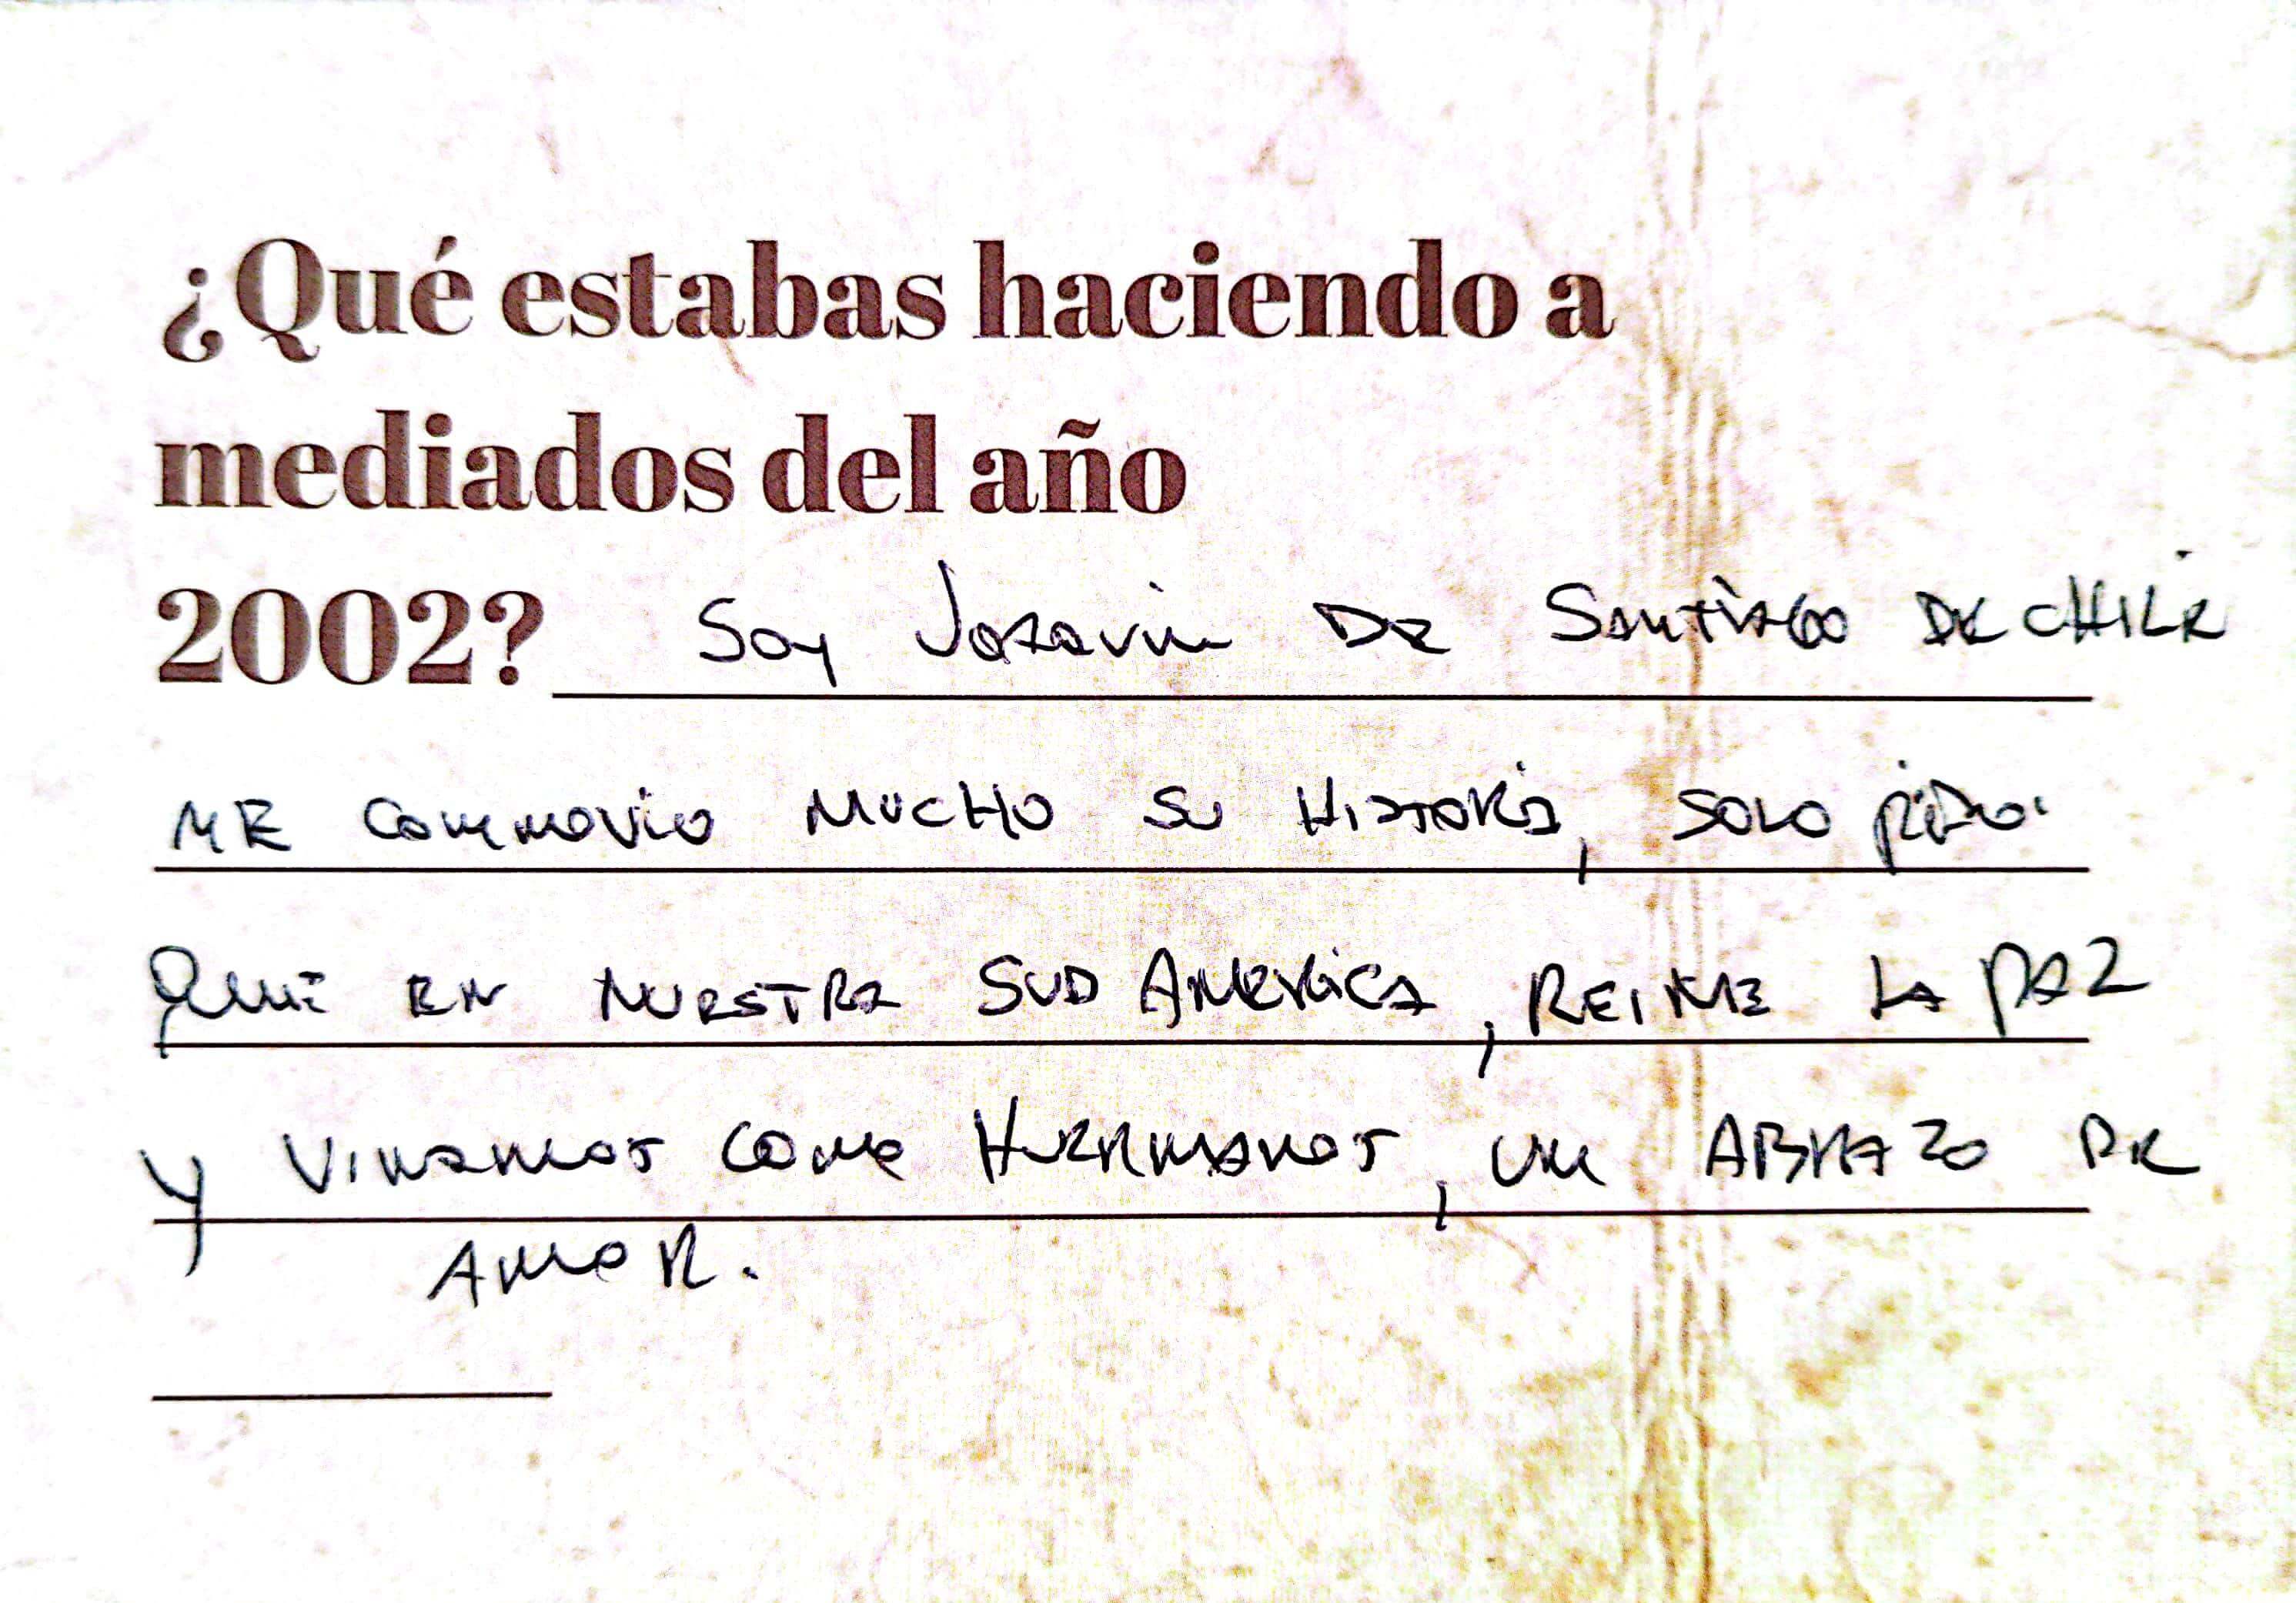 ¿Qué estabas haciendo a
mediados del año
2002? Soy De SANTIAGO DE CHILE
ME Conmovio MUCHO SU HISTORIA, SOLO PiDo
QUE EN NUESTRA SUD AMERICA, REINE LA PAZ
Y VIVAMOS COMO HERMANOS, UN ABRAZO DE
AMOR.